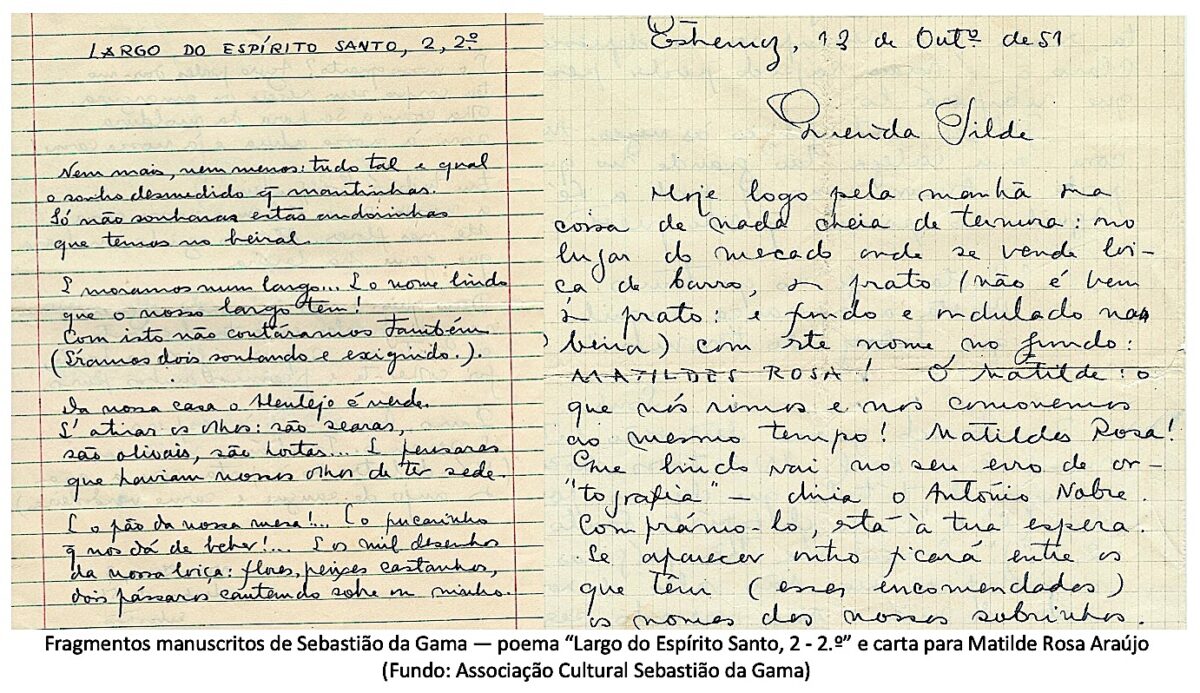 LARGO DO ESPÍRITO SANTO, 2, 2.º
Nem mais, nem menos: tudo tal e qual
o sonho desmedido q̃ mantinhas.
Só não sonharas estas andorinhas
que temos no beiral.
E moramos num largo... E o nome lindo
que o nosso largo tem!
Com isto não contáramos também.
(Éramos dois sonhando e exigindo.).
Da nossa casa o Alentejo é verde.
É atirar os olhos: são searas,
são olivais, são hortas... E pensaras
que haviam nossos olhos de ter sede.
E o pão da nossa mesa!... E o pucarinho
q̃ nos dá de beber!... E os mil desenhos
da nossa loiça: flores, peixes castanhos,
dois pássaros cantando sobre um ninho.
Estremoz, 13 de Outº de 51
Querida Tilde
Hoje logo pela manhã uma
coisa de nada cheia de ternura: no
lugar do mercado onde se vende loi-
ça de barro, um prato (não é bem
um prato: é fundo e ondulado na
beira) com este nome no fundo:
MATILDES ROSA! Ó Matilde: o
que nós rimos e nos comovemos
ao mesmo tempo! Matildes Rosa!
Que lindo vai no seu erro de or-
"tografia" — diria o António Nobre.
Comprámo-lo, está à tua espera.
Se aparecer outro ficará entre os
que têm (esses encomendados)
os nomes dos nossos sobrinhos.
Fragmentos manuscritos de Sebastião da Gama — poema “Largo do Espírito Santo, 2 - 2.º” e carta para Matilde Rosa Araújo
(Fundo: Associação Cultural Sebastião da Gama)